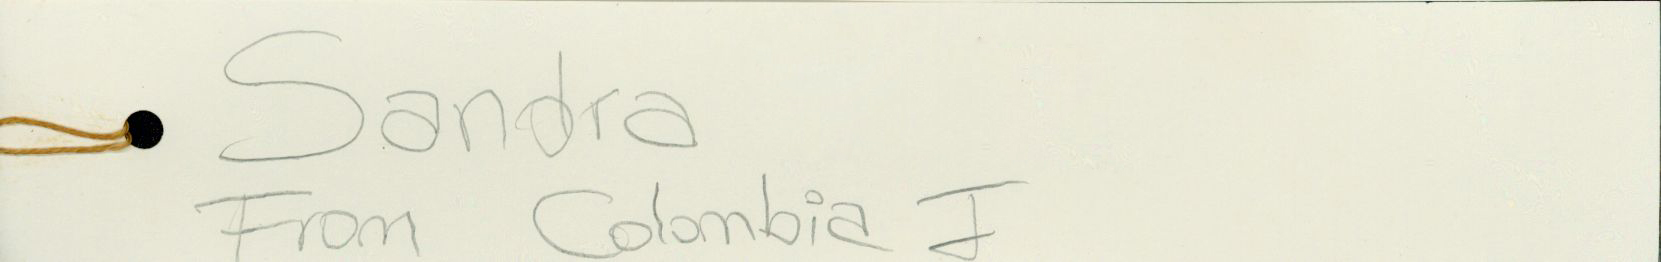 Sandra
From Colombia I